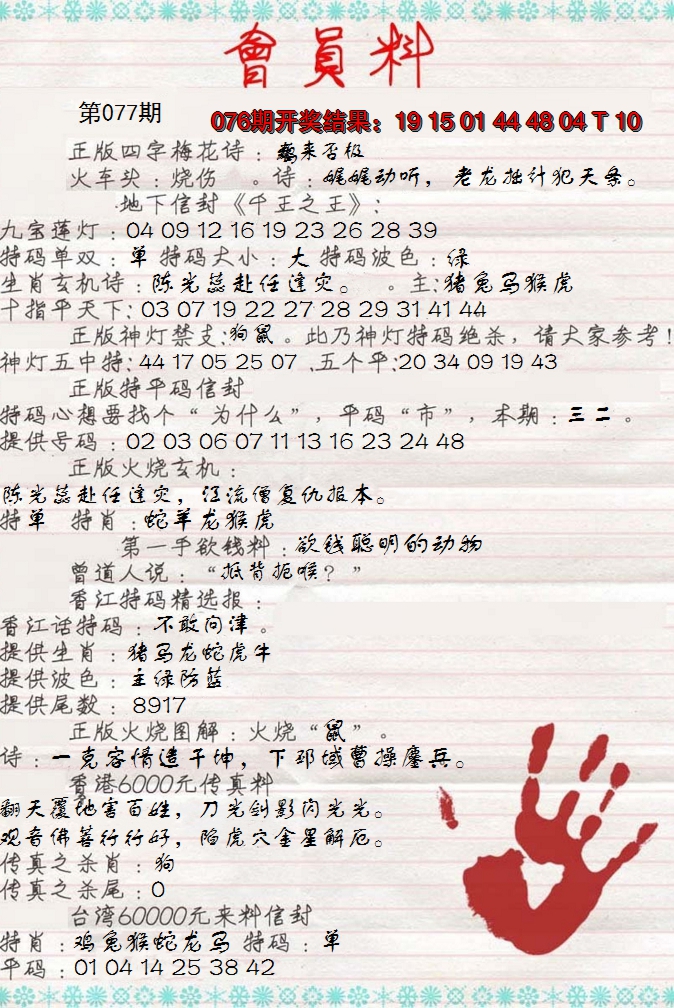 會員料
第077期
076期开奖结果：19 15 01 44 48 04 T 10
正版四字梅花诗：来否极
火车头：烧伤 。诗：娓娓动听，老龙拙计犯天条。
地下信封《千王之王》：
九宝莲灯：04 09 12 16 19 23 26 28 39
特码单双：单 特码大小：大 特码波色：绿
生肖玄机诗：陈光蕊赴任逢灾。 。主:猪兔马猴虎
十指平天下：03 07 19 22 27 28 29 31 41 44
正版神灯禁支:狗鼠。此乃神灯特码绝杀，请大家参考！
神灯五中特:44 17 05 25 07 .五个平:20 34 09 19 43
正版特平码信封
特码心想要找个“为什么”，平码“市”，本期：三二。
提供号码：02 03 06 07 11 13 16 23 24 48
正版火烧玄机：
陈光蕊赴任逢灾，江流僧复仇报本。
特单 特肖：蛇羊龙猴虎
第一手欲钱料：欲钱聪明的动物
曾道人说：“抵背扼喉？”
香江特码精选报：
香江话特码：不敢问津。
提供生肖：猪马龙蛇虎牛
提供波色：主绿防蓝
提供尾数：8917
正版火烧图解：火烧“鼠”。
诗：一克容情造干坤，下邳城曹操鏖兵。
香港6000元传真料
翻天覆地害百姓，刀光剑影闪光光。
观音佛善行行好，陷虎穴金星解厄。
传真之杀肖：狗
传真之杀尾：0
台湾60000元来料信封
特肖：鸡兔猴蛇龙马 特码：单
平码：01 04 14 25 38 42